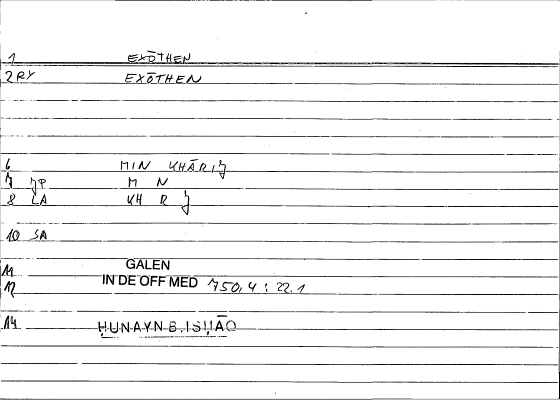 1 EXŌTHEN
2RY EXŌTHEN
6 MIN KHĀRIJ
7 JP M N
8 LA KH R J
10 SA
11 GALEN
12 IN DE OFF MED 750,4 : 22.1
14 ḤUNAYN B. ISḤĀQ